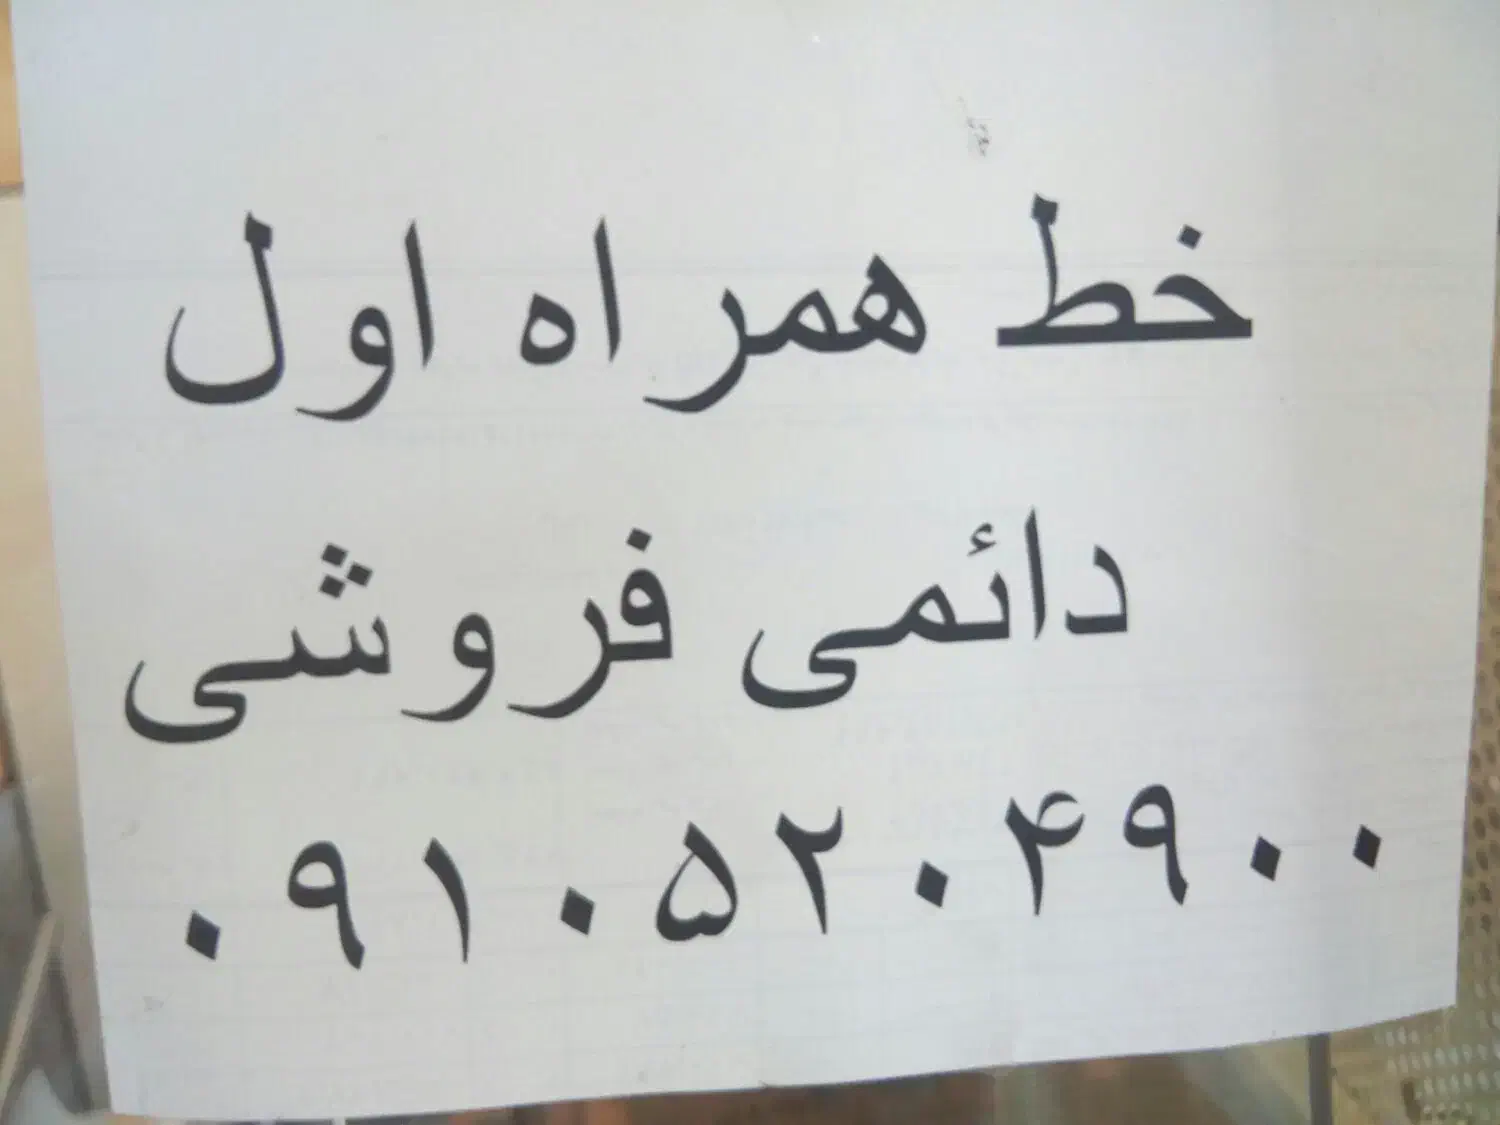 خط همراه اول
دائمی فروشی
۰۹۱۰۵۲۰۴۹۰۰